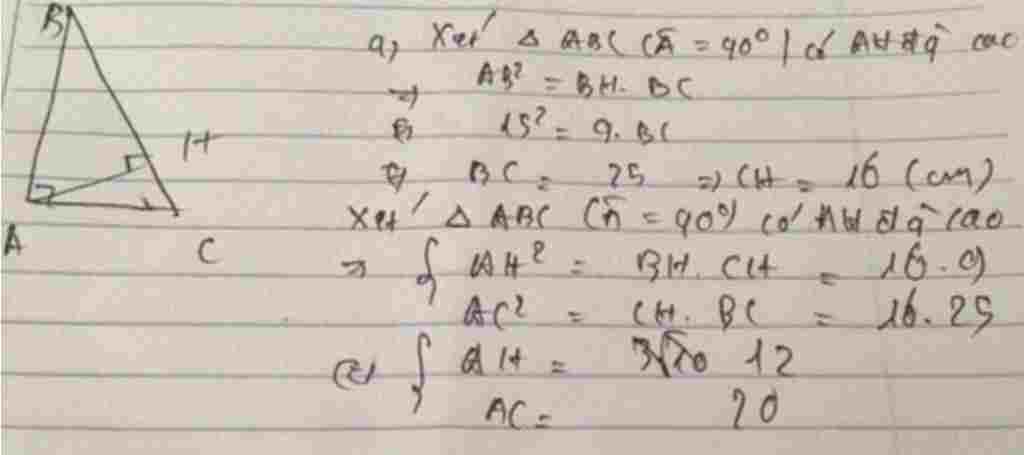 B
H
A
C
a, Xét Δ ABC (Â = 90°) có AH đg cao
=> AB² = BH. BC
<=> 15² = 9. BC
<=> BC = 25 => CH = 16 (cm)
Xét Δ ABC (Â = 90°) có AH đg cao
=> { AH² = BH. CH = 16. 9
AC² = CH. BC = 16. 25
<=> { AH = 12
AC = 20